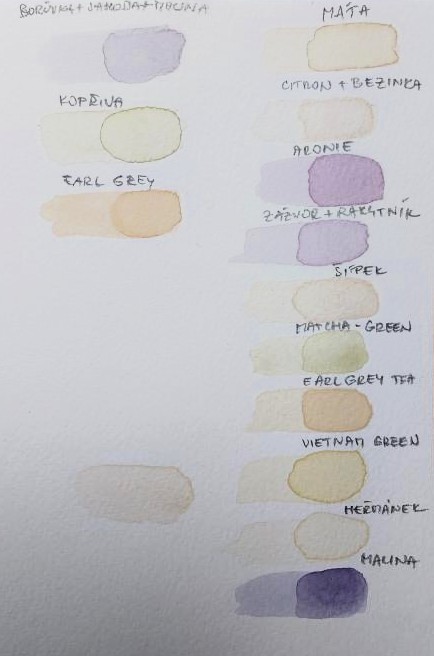 BORŮVKA + JAHODA + MALINA
KOPŘIVA
EARL GREY
MÁTA
CITRON + BEZINKA
ARONIE
ZÁZVOR + RAKYTNÍK
ŠÍPEK
MATCHA - GREEN
EARL GREY TEA
VIETNAM GREEN
HEŘMÁNEK
MALINA